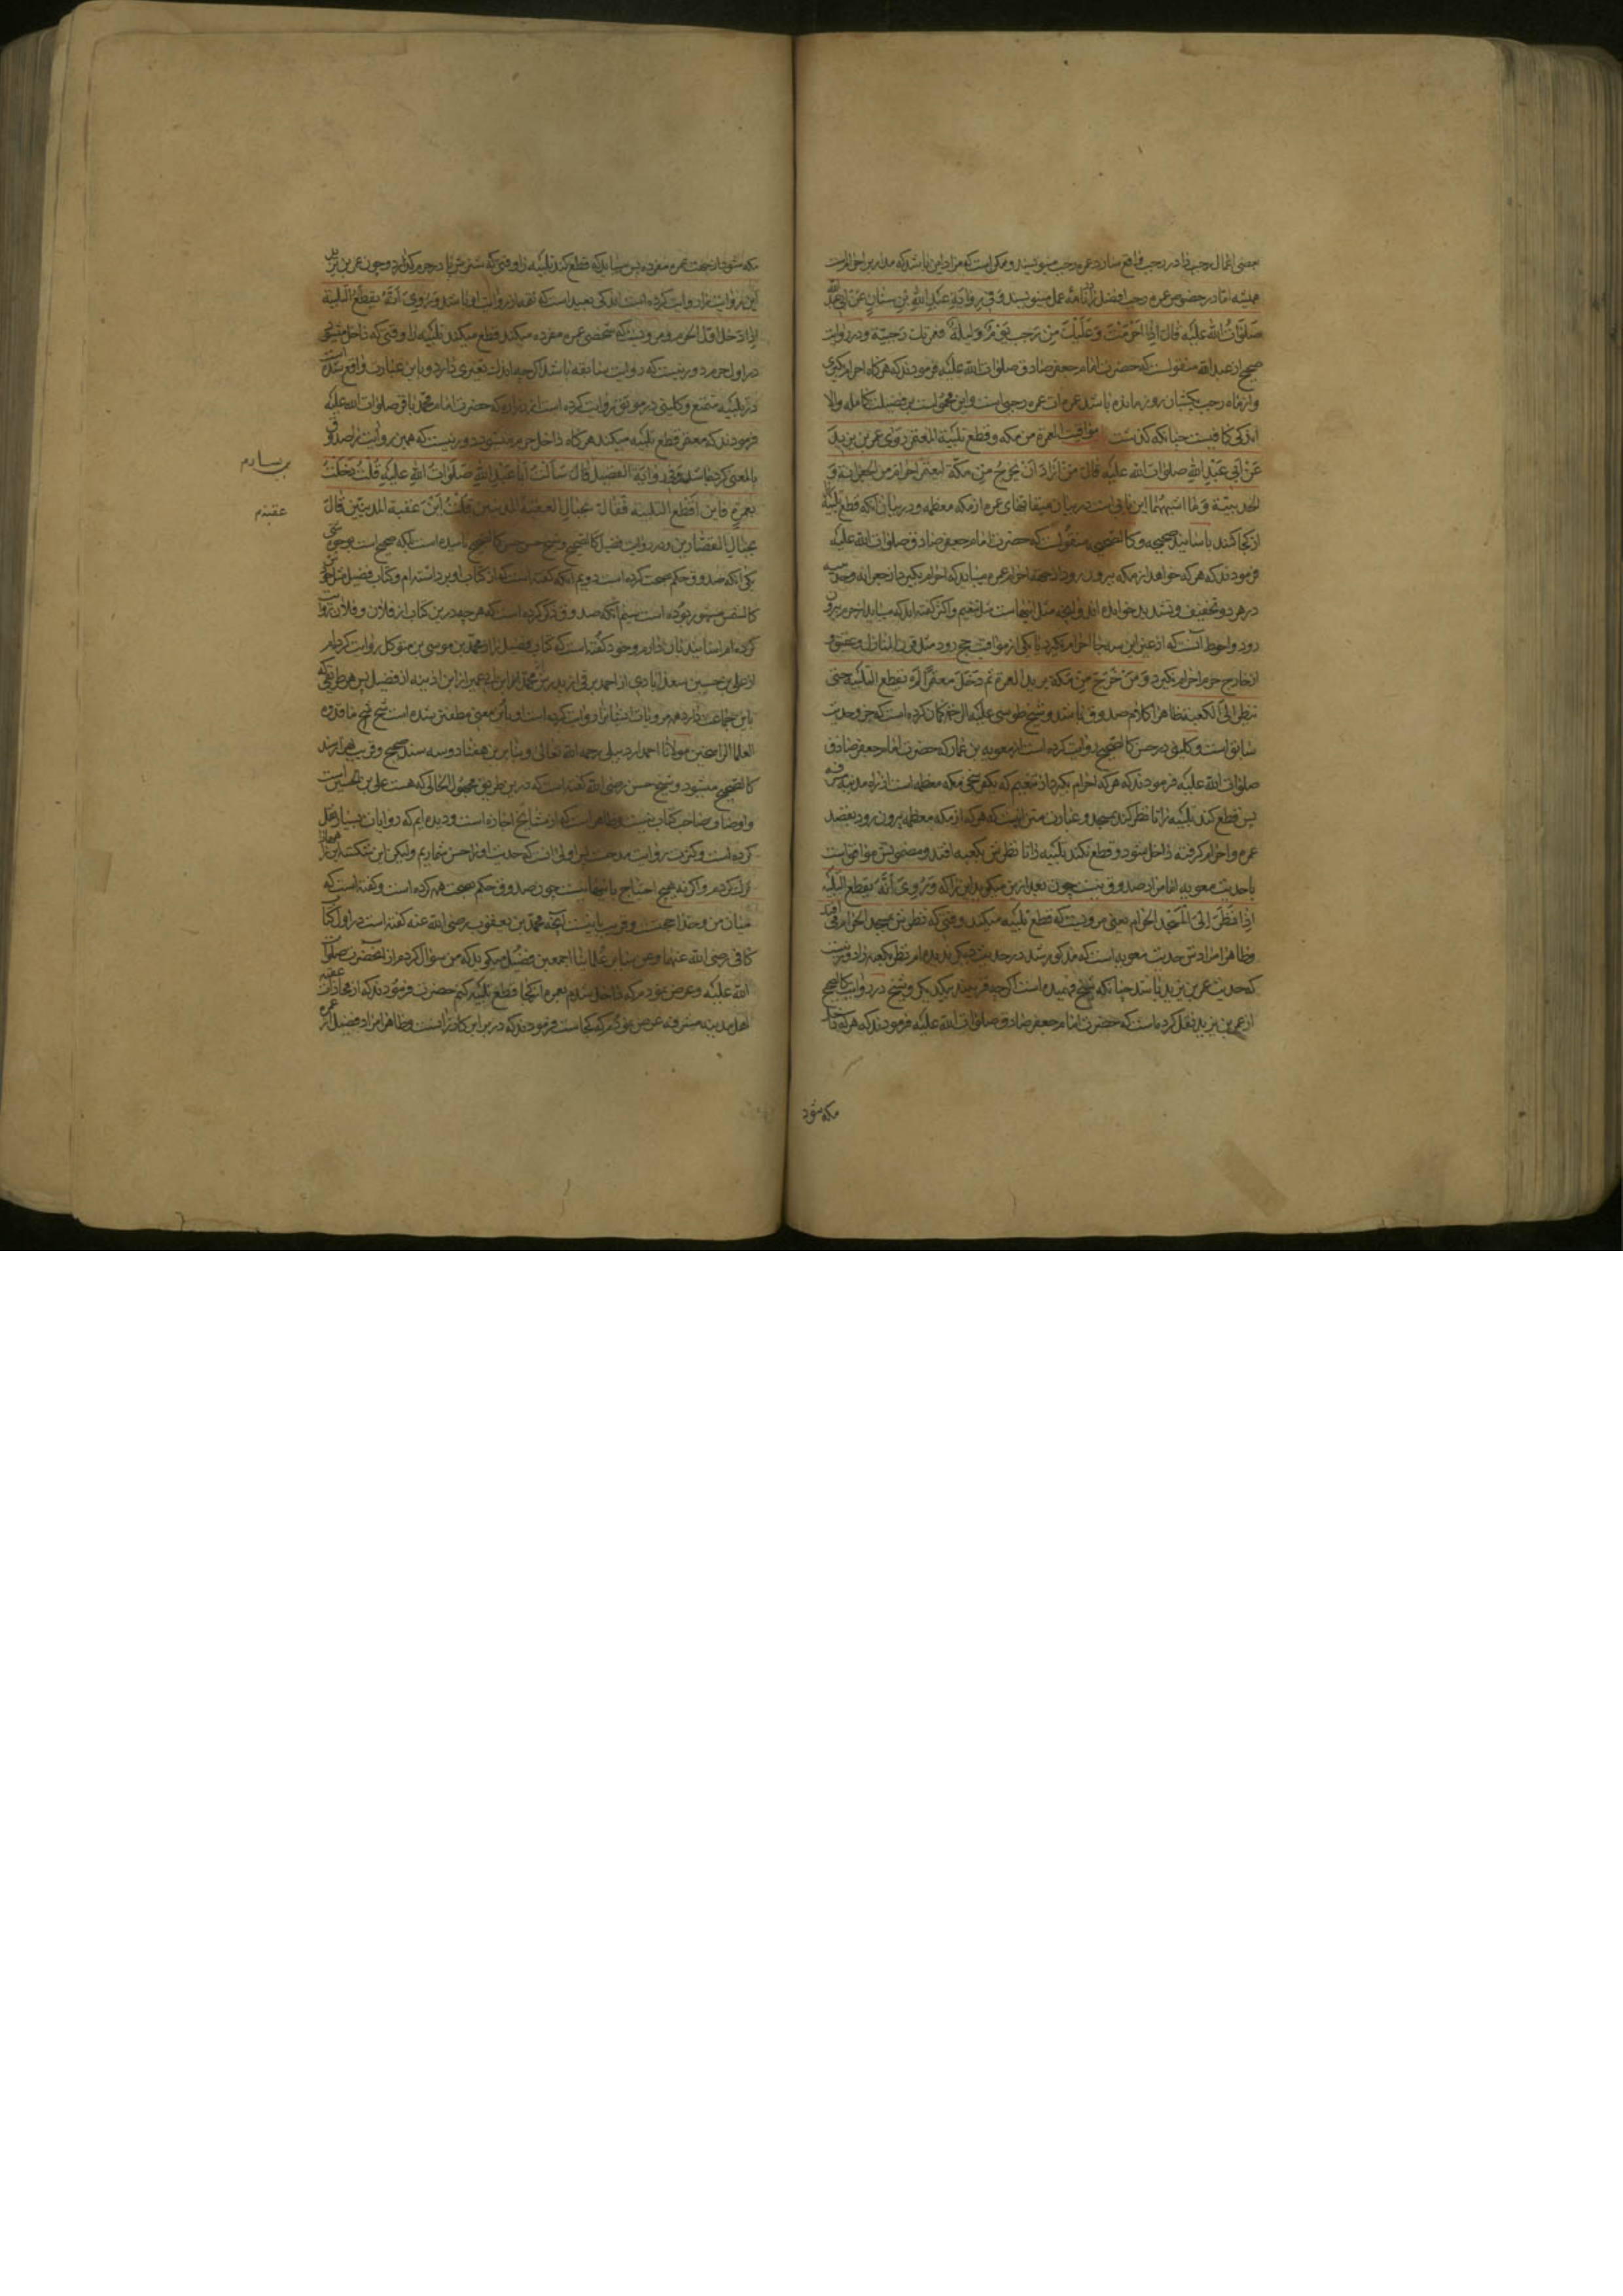 بعضی اعمال رجب را در رجب واقع سازد عمره رجب مینویسند و ممکن است که مراد این باشد که مدار بر احرامست
همیشه اما در خصوص عمره رجب افضل را نامه عمل مینویسند وَفی رِوایَةِ عَبدِ اللهِ بْنِ سِنانٍ عَنْ اَبی عَبدِ اللهِ
صَلَوٰاتُ اللهِ عَلَیْه قالَ اِذا اَحْرَمْتَ وَعَلَیْكَ مِنْ رَجَبٍ یَوْمٌ وَلَیلَةٌ فعمرتك رَجَبِیّة و در روایت
صحیح از عبد الله منقولست که حضرت امام جعفر صادق صلوات الله علیه فرمودند که هر گاه احرام بگیری
و از ماه رجب یکشبان روز مانده باشد عمره ات عمره رجبی است و این محمول است بر فضیلت کامله والا
اندکی کافیست چنانکه گذشت مواقیت العمرة من مکه وقطع تلبیة المعتمر رَوٰی عمر بن یزید
عَنْ اَبی عَبْدِ اللهِ صلوات الله علیه قالَ مَنْ اَرٰادَ اَنْ یَخرُجَ مِنْ مَکّةَ لیعتمر احرم من الجعرانة وَ
الحدیبیّة وَمٰا اشبههما این بابیست در بیان میقاتهای عمره از مکه معظمه و در بیان آنکه قطع تلبیه
از کجا کنند باسانید صحیحه و کالصحیحه منقولست که حضرت امام جعفر صادق صلوات الله علیه
فرمودند که هر که خواهد از مکه بیرون رود از جهة احرام عمره میباید که احرام بگیرد از جعرانه وحدیبیه
در هر دو تخفیف و تشدید خوانده اند و آنچه مثل اینهاست مثل تنعیم و اکثر گفته اند که میباید از حرم بیرون
رود و احوط آنست که از غیر این سه جا احرام نگیرد یا بیکی از مواقیت حج رود مثل قرن المنازل وعقیق و
از خارج حرم احرام بگیرد وَمَنْ خَرَجَ مِنْ مَکة یرید العمرة ثم دَخَلَ معتمراً لَمْ یقطع التّلبیة حتی
ینظر اِلَی الکعبة ظاهرا کلام صدوق باشد و شیخ طوسی علیه الرحمة گمان کرده است که جزو حدیث
سابق است و کلینی در حسن کالصحیح روایت کرده است از معویه بن عمار که حضرت امام جعفر صادق
صلوات الله علیه فرمودند که هر که احرام بگیرد از تنعیم که یکفرسخی مکه معظمه است از راه مدینه مشرفه
پس قطع کند تلبیه را تا نظر کند بمسجد و عبارت متن اینست که هر که از مکه معظمه بیرون رود بقصد
عمره و احرام گرفته داخل شود و قطع نکند تلبیه را تا نظرش بکعبه افتد و مضمونش موافق است
با حدیث معویه اما مراد صدوق نیست چون بعد ازین میگوید این را که وَرُوِیَ اَنَّهُ یقطع التلبیة
اِذٰا نَظَرَ اِلَی الْمَسْجِد الحَرام یعنی مرویست که قطع تلبیه میکند وقتی که نظرش بمسجد الحرام افتد
وظاهرا مرادش حدیث معویه است که مذکور شد در حدیث دیگر ندیده ام نظر بکعبه را و دور نیست
که حدیث عمر بن یزید باشد چنانکه شیخ فهمیده است اگر چه قریبند بیکدیگر و شیخ در روایت کالصحیح
از عمر بن یزید نقل کرده است که حضرت امام جعفر صادق صلوات الله علیه فرمودند که هر که داخل
مکه شود
مکه شود از جهت عمره مفرده پس میباید که قطع کند تلبیه را وقتی که شترش پا در حرم گذارد و چون عمر بن یزید
این روایت را روایت کرده است اندکی بعید است که تتمه از روایت او باشد وَرُوِیَ اَنَّهُ یَقْطَعُ التَّلْبِیَةَ
اِذٰا دَخَلَ اَوَّلَ الحَرم ومرویست که شخصی عمره مفرده میکند قطع میکند تلبیه را وقتی که داخل میشود
در اول حرم و دور نیست که روایت سابقه باشد اگر چه اندك تغییری دارد و باین عبارت واقع شده است
در تلبیه متمتع و کلینی در موثق روایت کرده است از زراره که حضرت امام محمد باقر صلوات الله علیه
فرمودند که معتمر قطع تلبیه میکند هر گاه داخل حرم میشود و دور نیست که همین روایت را صدوق
بالمعنی کرده باشد وَفی رِوٰایَة الفضیل قٰالَ سَاَلْتُ اَبٰا عَبْدِ اللهِ صَلَوٰاتُ اللهِ عَلَیْهِ قُلْتُ دَخَلْتُ
بعُمرَةٍ فاین اَقْطَعُ التلبیه فَقٰالَ بحِیالِ العقبة عقبة المدنیّین فَقُلْتُ اَیْنَ عَقَبة المدنیّین قٰالَ
بحِیالِ القصّارین و در روایت فضیل کالصحیح و شیخ حسن حسن کالصحیح نامیده است بلکه صحیح است بوجوه
یکی آنکه صدوق حکم بصحت کرده است دویم آنکه گفته است که از کتاب او برداشته ام و کتاب فضیل مثل خودش
کالشمس مشهور بوده است سیم آنکه صدوق ذکر کرده است که هر چه درین کتاب از فلان و فلان روایت
کرده ام اسانید بآن دارم و خود گفته است که کتاب فضیل را از محمد بن موسی بن متوکل روایت کرده ام
از علی بن حسین سعدآبادی از احمد برقی از پدرش محمد از ابن ابی عمیر از ابن اذینه از فضیل پس هر طریقی که
باین جماعت دارد همه مرویات ایشانرا روایت کرده است و باین معنی متفطن شده است شیخ شیخ ما قدوة
العلماء الراسخین مولانا احمد اردبیلی رحمه الله تعالی و بنابرین هفتاد و سه سند صحیح و قریب بهزار سند
کالصحیح میشود و شیخ حسن رضی الله گفته است که درین طریق مجهول الحالی که هست علی بن الحسین است
و او ضاف صاحب کتاب نیست و ظاهر است که از مشایخ اجازه است و دیده ایم که روایات بسیار نقل
کرده است و کثرت روایت مدحست پس اولی آنست که حدیث او را حسن شماریم ولیکن این شکسته این مجازا را
ترك کردم و اگر نه هیچ احتیاج باینها نیست چون صدوق حکم بصحت همه کرده است و گفته است که
میان من و خدا حجت است و قریب باینست آنچه محمد بن یعقوب رضی الله عنه گفته است در اول کتاب
کافی رضی الله عنهما وعن سایر علمائنا اجمعین فضیل میگوید که من سؤال کردم از آنحضرت صلوات
الله علیه و عرض نمودم که داخل شدم بعمره از کجا قطع تلبیه کنم حضرت فرمودند که از محاذات عقبه
اهل مدینه مشرفه عرض نمودم که کجاست فرمودند که در برابر گازرانست و ظاهرا مراد فضیل از عمره
عقبة م